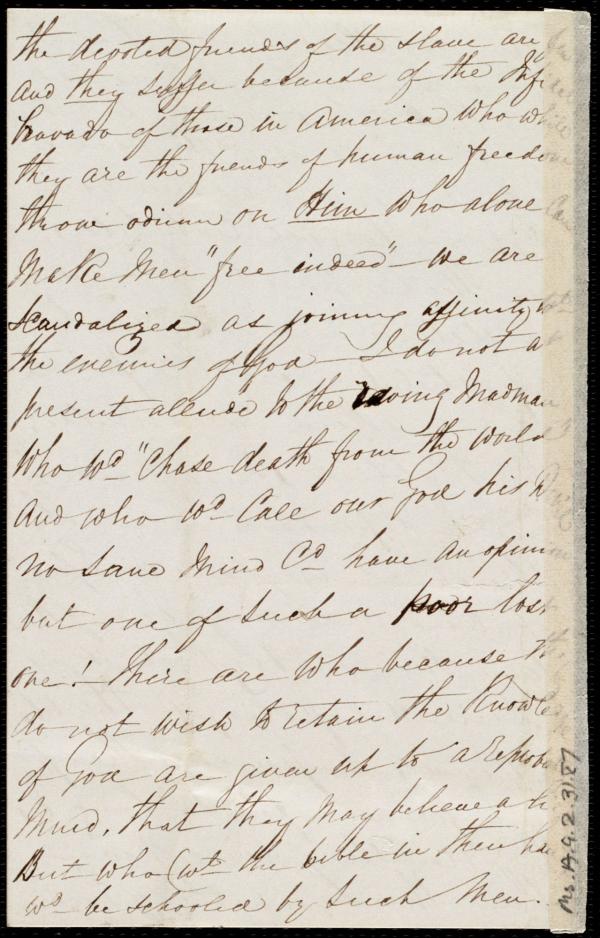 the devoted friends of the slave are
and they suffer because of the Inf
bravado of those in America who while
they are the friends of human freedom
throw odium on Him who alone can
make men "free indeed" - we are
scandalized as joining affinity wt
the enemies of God - I do not at
present allude to the raving madman
who wd "chase death from the world"
and who wd call our God his
no sane mind cd have an opinion
but one of such a poor lost
one! There are who because they
do not wish to retain the knowledge
of God are given up to a reproba
mind, that they may believe a li
But who (wt the bible in their ha
wd be schooled by such men.
Ms. A.9.2.31.27